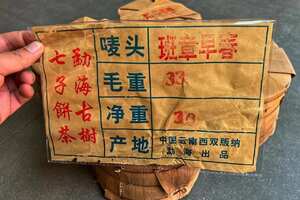 勐海古樹
七子餅茶
唛头 班章早春
毛重 33
净重 30
产地 中国云南西双版纳
勐海出品